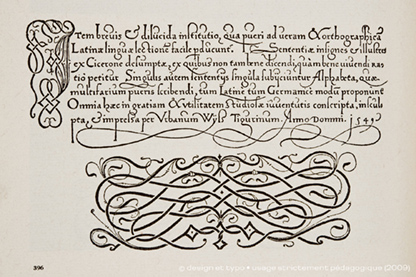 Item brevis & dilucida institutio, qua pueri ad veram & orthographicā
Latinæ linguæ lectionē facile ꝑducunt. Itē Sententiæ insignes & illustres
ex Cicerone desumptæ, ex quibus non tam bene dicendi, quam bene vivendi ratio
petitur. Singulis autem sententijs singula subijciuntur Alphabeta, quæ
multifariam pueris scribendi, tum Latine tum Germanice modū proponunt
Omnia hæc in gratiam & utilitatem studiosæ iuventutis conscripta, insculpta,
& impressa per Urbanum Wyss Tigurinum. Anno Domini. 1549
396
© design et typo • usage strictement pédagogique (2009)